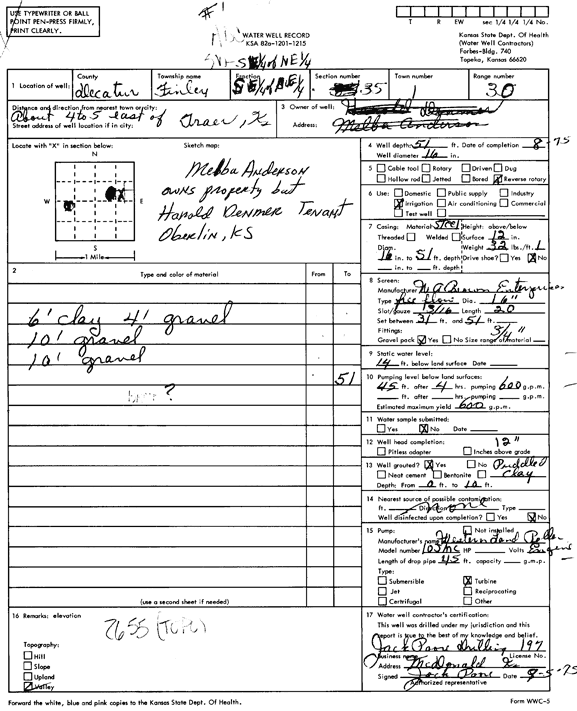 USE TYPEWRITER OR BALL
POINT PEN-PRESS FIRMLY,
PRINT CLEARLY.
#1
WATER WELL RECORD
KSA 82a-1201-1215
T R EW sec 1/4 1/4 1/4 No.
Kansas State Dept. Of Health
(Water Well Contractors)
Forbes-Bldg. 740
Topeka, Kansas 66620
1 Location of well:
County
Decatur
Township name
Finley
Fraction
Section number
35
Town number
1
Range number
30
Distance and direction from nearest town or city:
About 4 to 5 east of Traer, Ks
Street address of well location if in city:
3 Owner of well:
Address: Melba Anderson
Locate with "X" in section below:
N
W E
S
1 Mile
Sketch map:
Melba Anderson
owns property but
Harold Denmer Tenant
Oberlin, KS
4 Well depth 51 ft. Date of completion 8-75
Well diameter 16 in.
5 Cable tool Rotary Driven Dug
Hollow rod Jetted Bored X Reverse rotary
6 Use: Domestic Public supply Industry
X Irrigation Air conditioning Commercial
Test well
7 Casing: Material Steel Height: above/below
Threaded Welded Surface 12 in.
Diam. Weight 32 lbs./ft.
16 in. to 51 ft. depth Drive shoe? Yes X No
in. to ft. depth
2 Type and color of material From To
6' clay 4' gravel
10' gravel
10' gravel
51
?
8 Screen:
Manufacturer
Type free flow Dia. 16"
Slot/gauze 13/16 Length 20
Set between 31 ft. and 51 ft.
Fittings: 3/4"
Gravel pack Yes No Size range of material
9 Static water level:
14 ft. below land surface Date
10 Pumping level below land surfaces:
45 ft. after 4 hrs. pumping 600 g.p.m.
ft. after hrs. pumping g.p.m.
Estimated maximum yield 600 g.p.m.
11 Water sample submitted:
Yes X No Date
12 Well head completion: 12"
Pitless adapter Inches above grade
13 Well grouted? X Yes No Puddled
Neat cement Bentonite Clay
Depth: From 0 ft. to 10 ft.
14 Nearest source of possible contamination:
ft. Direction Type
none
Well disinfected upon completion? Yes X No
15 Pump: Not installed
Manufacturer's name Western Land
Model number HP Volts
Length of drop pipe 45 ft. capacity g.m.p.
Type:
Submersible X Turbine
Jet Reciprocating
Centrifugal Other
(use a second sheet if needed)
16 Remarks: elevation
2655 (TOPO)
Topography:
Hill
Slope
Upland
Valley
17 Water well contractor's certification:
This well was drilled under my jurisdiction and this
report is true to the best of my knowledge and belief.
Jack Pore Drilling 197
Business name License No.
Address McDonald Ks
Signed Jack Pore Date 9-5-75
Authorized representative
Forward the white, blue and pink copies to the Kansas State Dept. Of Health.
Form WWC-5